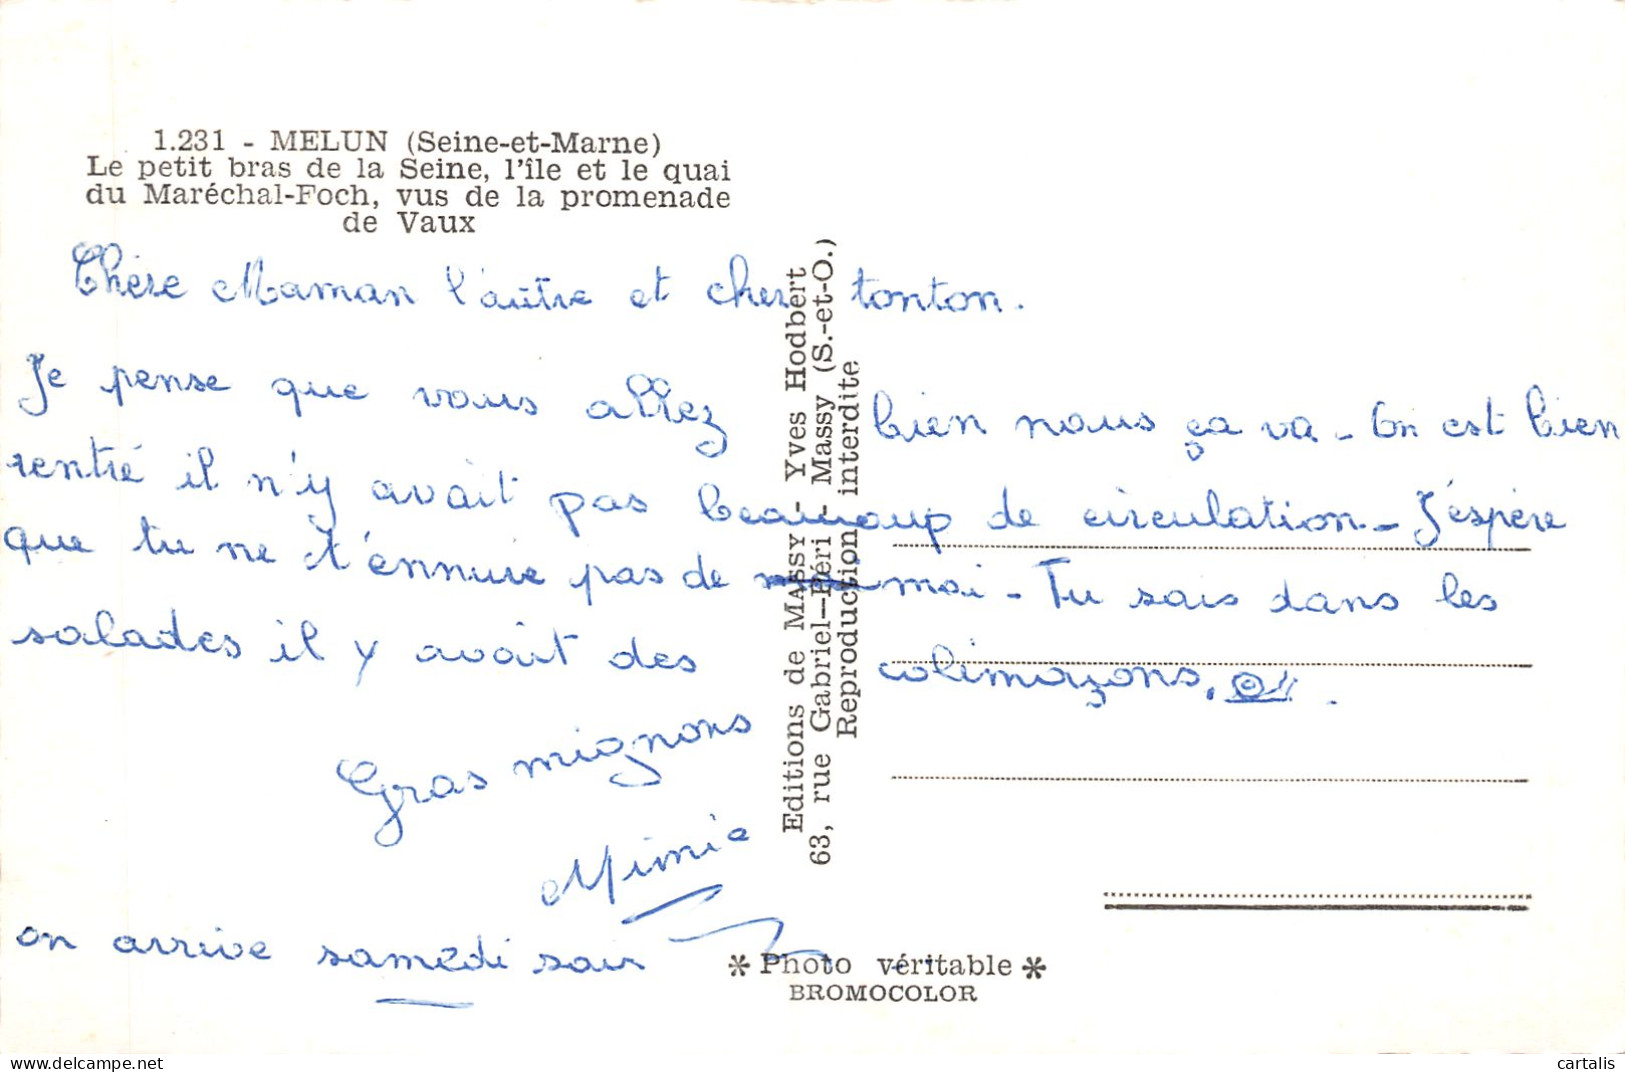 1.231 - MELUN (Seine-et-Marne)
Le petit bras de la Seine, l'île et le quai
du Maréchal-Foch, vus de la promenade
de Vaux
Chère Maman l'autre et cher tonton.
Je pense que vous allez bien nous ça va - On est bien
rentré il n'y avait pas beaucoup de circulation - J'éspère
que tu ne t'énnuie pas de moi - Tu sais dans les
salades il y avait des colimaçons.
Gras mignons
Mimie
on arrive samedi soir
Editions de MASSY - Yves Hodbert
63, rue Gabriel-Péri - Massy (S.-et-O.)
Reproduction interdite
* Photo véritable *
BROMOCOLOR
www.delcampe.net
cartalis